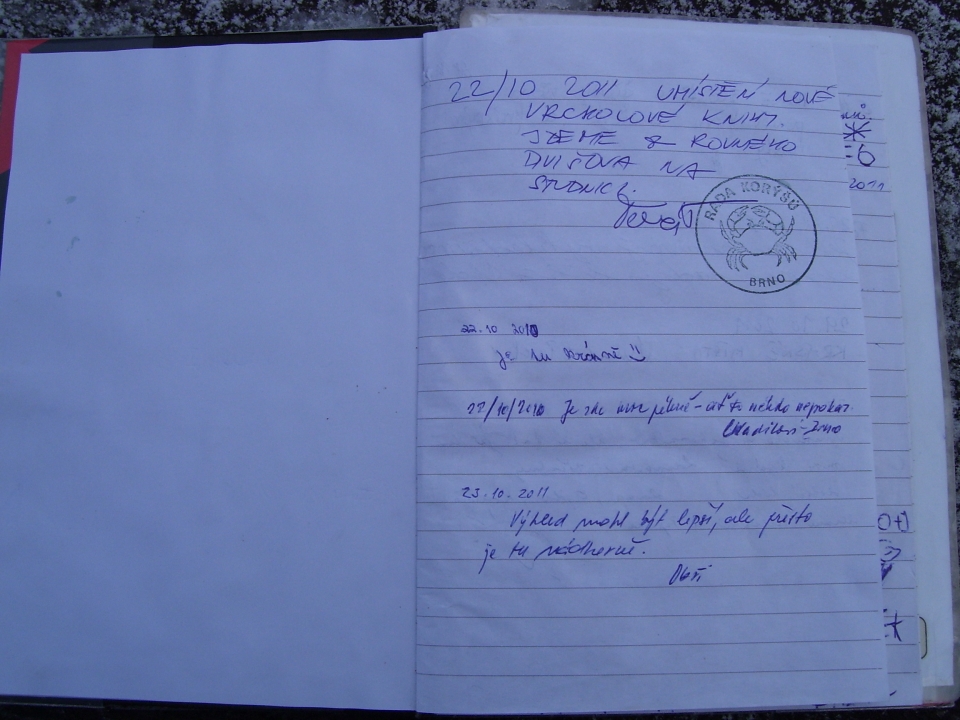 22/10 2011 UMÍSTĚNÍ NOVÉ
VRCHOLOVÉ KNIHY.
JDEME Z ROVNÉHO
NA
RADA KORÝŠŮ
BRNO
22.10 2010
je tu krásně
22/10/2010 Je zde moc pěkně - ať to nikdo nepokazí
Brno
23.10.2011
Výhled mohl být lepší, ale přesto
je tu nádherně.
2011